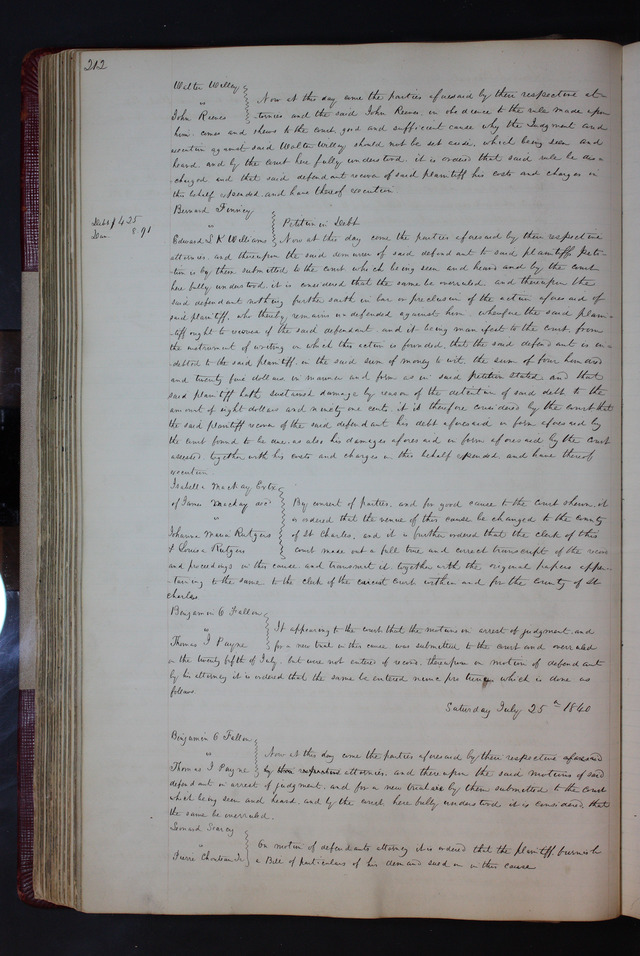 212
Walter Willey
" Now at this day come the parties aforesaid by their respective at-
John Reeves torneies and the said John Reeves in obedience to the rule made upon
him comes and shews to the court good and sufficient cause why the Judgment and
execution against said Walter Willey should not be set aside, which being seen and
heard and by the court here fully understood it is ordered that said rule be dis-
charged and that said defendant recover of said plaintiff his costs and charges in
this behalf expended and have thereof execution.
Bernard Finney
Debt $425 " Petition in Debt
Dam 8.91 Edward L K Williams Now at this day come the parties aforesaid by their respective
attornies, and thereupon the said demurrer of said defendant to said plaintiffs Peti-
tion is by them submitted to the court which being seen and heard and by the court
here fully understood, it is considered that the same be overruled, and thereupon the
said defendant nothing further saith in bar or preclusion of the action aforesaid of
said plaintiff, who thereby remains undefended against him, wherefore the said plain-
tiff ought to recover of the said defendant, and it being manifest to the court from
the instrument of writing on which this action is founded, that the said defendant is in-
debted to the said plaintiff in the said sum of money to wit, the sum of four hundred
and twenty five dollars in manner and form as in said petition stated and that
said plaintiff hath sustained damage by reason of the detention of said debt to the
amount of eight dollars and ninety one cents, it is therefore considered by the court that
the said plaintiff recover of the said defendant his debt aforesaid in form aforesaid by
the court found to be due, as also his damages aforesaid in form aforesaid by the court
assessed, together with his costs and charges in this behalf expended and have thereof
execution
Isabella Mackay Extx
of James Mackay decd By consent of parties, and for good cause to the court shown, it
" is ordered that the venue of this cause be changed to the county
Johanna Maria Rutgers of St Charles, and it is further ordered that the clerk of this
& Louisa Rutgers court made out a full true and correct transcript of the record
and proceedings in this cause and transmit it together with the original papers apper-
taining to the same to the clerk of the circuit court within and for the county of St
Charles
Benjamin O Fallon
" It appearing to the court that the motions in arrest of judgment and
Thomas J Payne for a new trial in this cause was submitted to the court and overruled
on the twenty fifth of July, but were not entered of record, thereupon on motion of defendant
by his attorney it is ordered that the same be entered nunc pro tunc, which is done as
follows.
Saturday July 25th 1840
Benjamin O Fallon
" Now at this day come the parties aforesaid by their respective aforesaid
Thomas J Payne by their respective attornies, and thereupon the said motions of said
defendant in arrest of judgment, and for a new trial are by them submitted to the court
which being seen and heard, and by the court here fully understood it is considered that
the same be overruled.
Leonard Searcy
" On motion of defendants attorney it is ordered that the plaintiff furnish
Pierre Chouteau Jr a Bill of particulars of his demand sued on in this cause